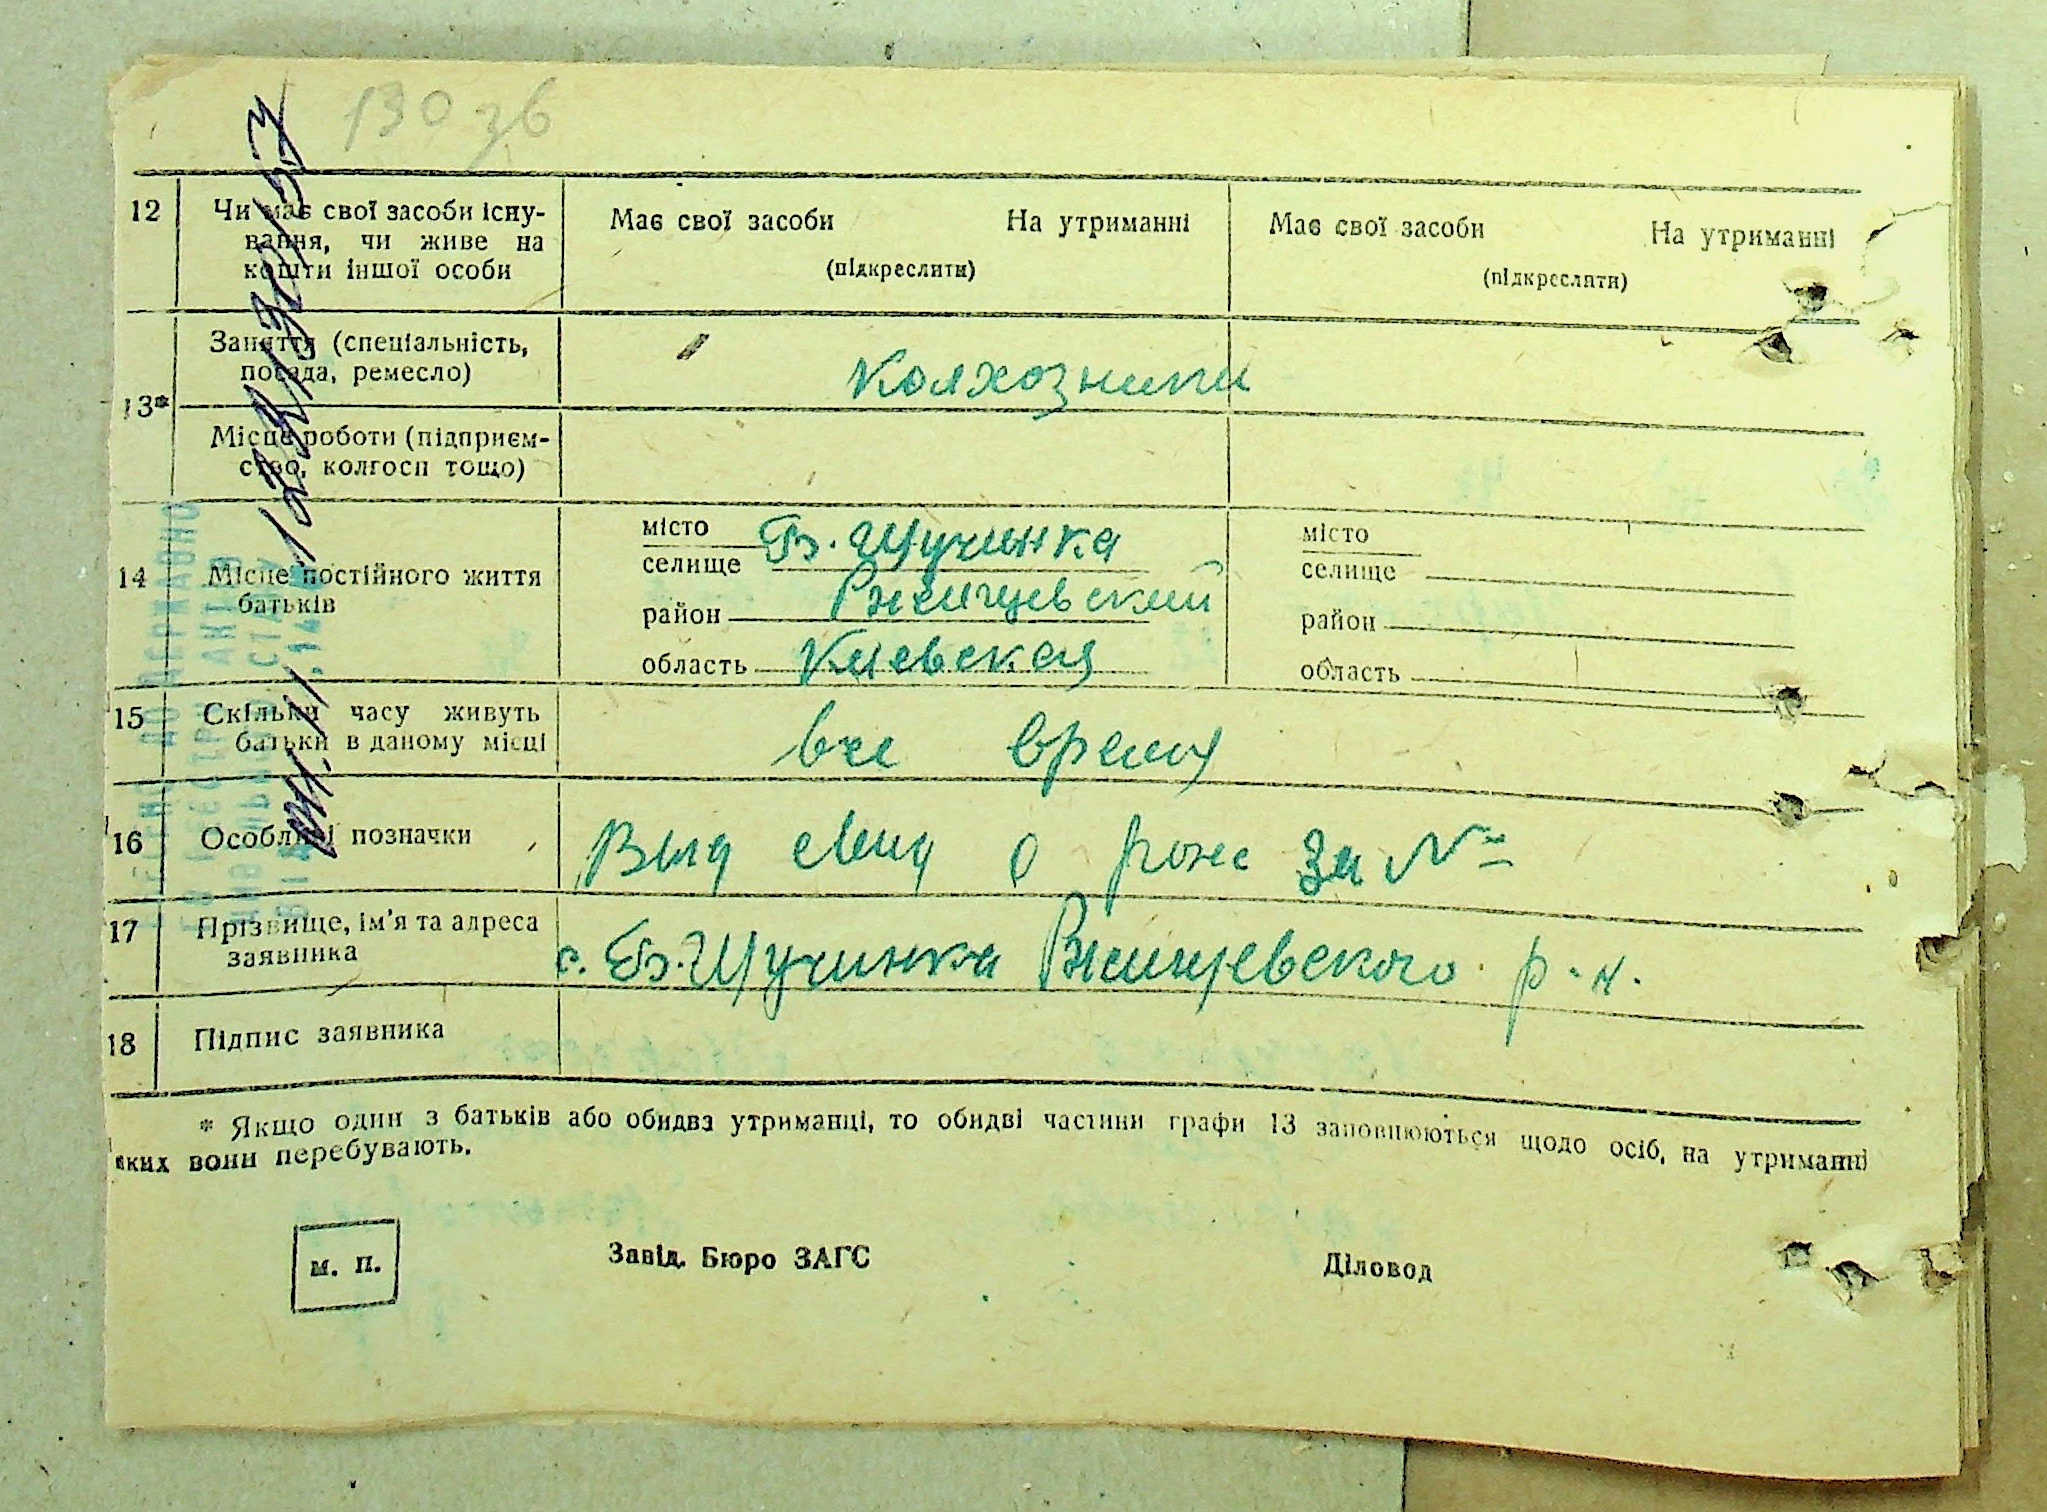 130 зв
12 Чи має свої засоби існу-
вання, чи живе на
кошти іншої особи
Має свої засоби На утриманні
(підкреслити)
Має свої засоби На утриманні
(підкреслити)
13*
Заняття (спеціальність,
посада, ремесло)
Колхозники
Місце роботи (підприєм-
ство, колгосп тощо)
14 Місце постійного життя
батьків
місто
селище Б. Щучинка
район Ржищевский
область Киевская
місто
селище
район
область
15 Скільки часу живуть
батьки в даному місці
все время
16 Особливі позначки
Выд свид о рожд за №
17 Прізвище, ім'я та адреса
заявника
с. Б. Щучинка Ржищевского р-н.
18 Підпис заявника
* Якщо один з батьків або обидва утриманці, то обидві частини графи 13 заповнюються щодо осіб, на утриманні
яких вони перебувають.
м. п.
Завід. Бюро ЗАГС
Діловод